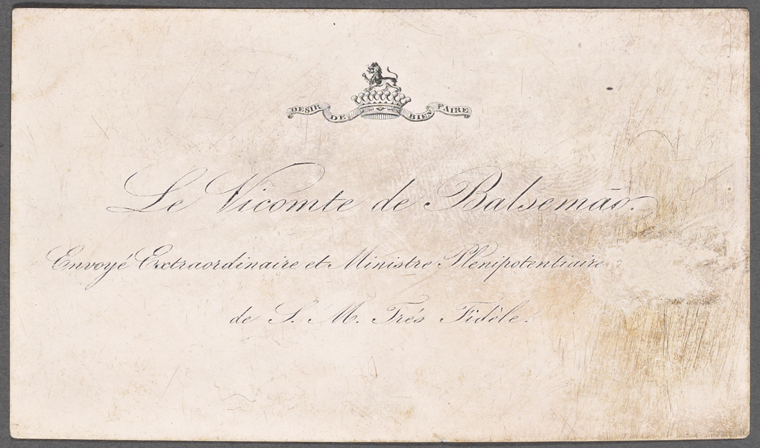 DESIR DE BIEN FAIRE
Le Vicomte de Balsemão.
Envoyé Extraordinaire et Ministre Plenipotentiaire
de S. M. Trés Fidèle.